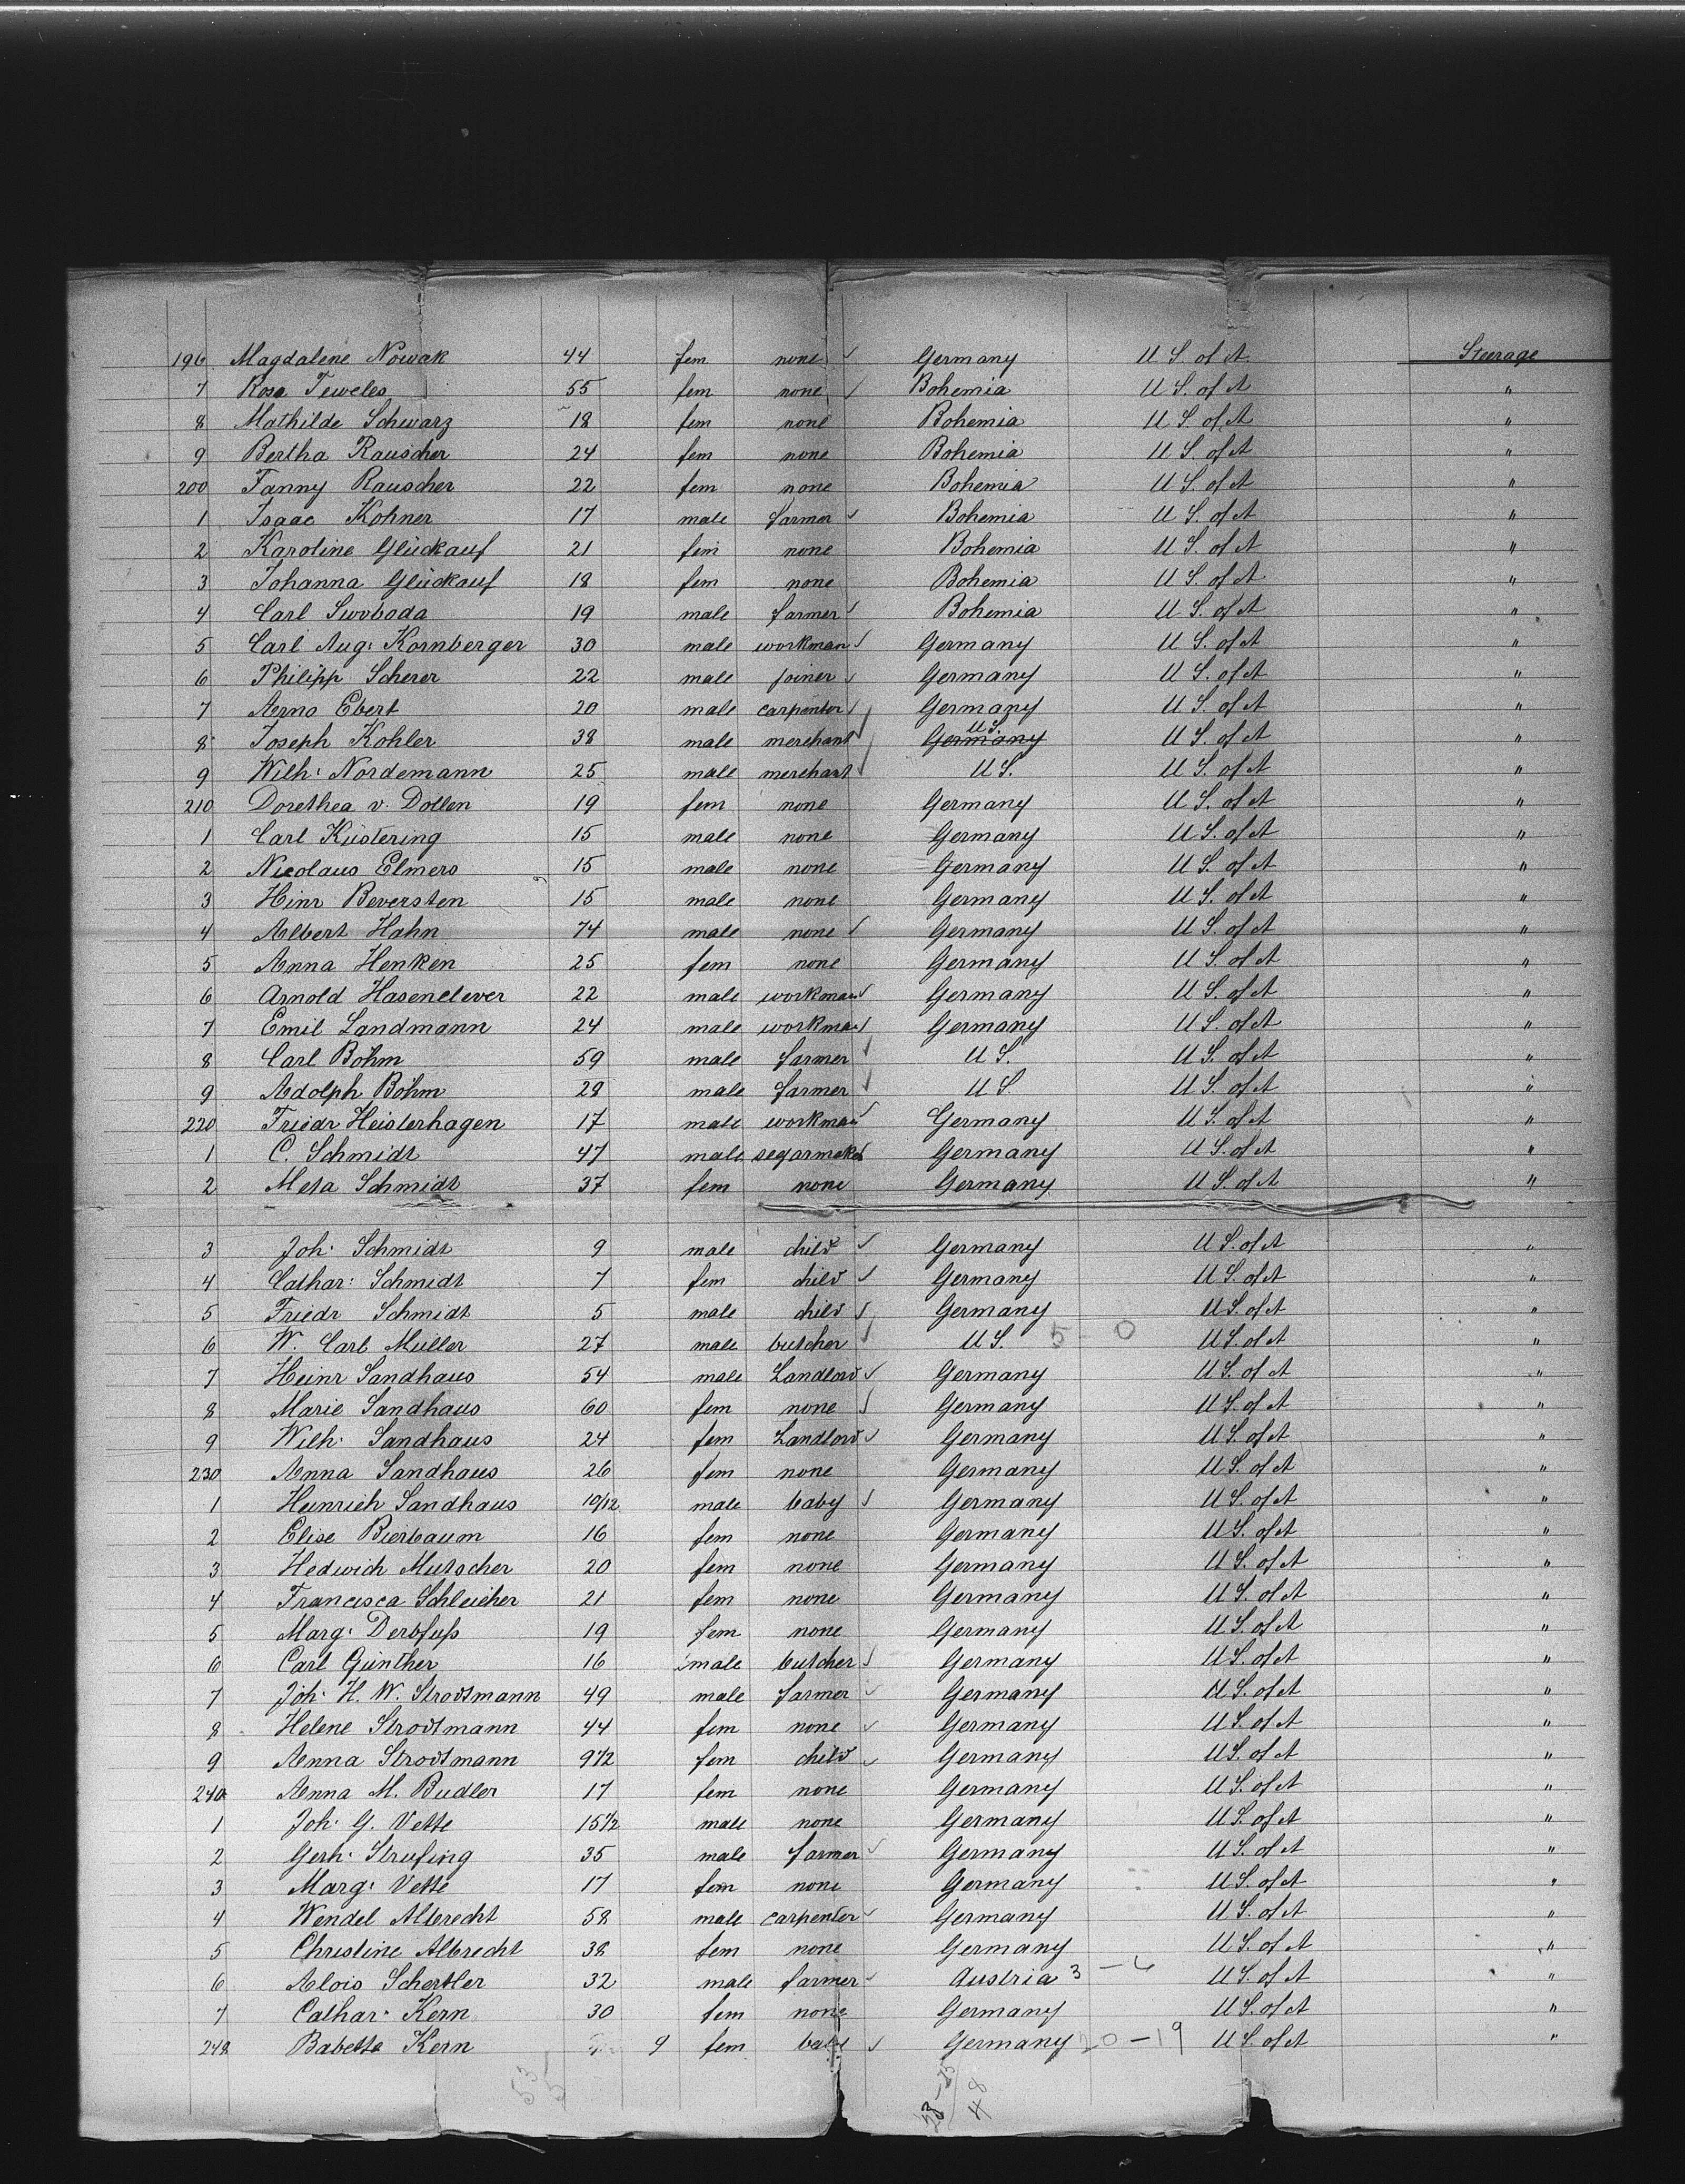 196 Magdalene Nowak 44 fem none ✓ Germany U S. of A Steerage
7 Rosa Teweles 55 fem none ✓ Bohemia U S. of A "
8 Mathilde Schwarz 18 fem none Bohemia U S. of A "
9 Bertha Rauscher 24 fem none Bohemia U S. of A "
200 Fanny Rauscher 22 fem none Bohemia U S. of A "
1 Isaac Kohner 17 male farmer ✓ Bohemia U S. of A "
2 Karoline Glückauf 21 fem none Bohemia U S. of A "
3 Johanna Glückauf 18 fem none Bohemia U S. of A "
4 Carl Swoboda 19 male farmer ✓ Bohemia U S. of A "
5 Carl Aug: Kornberger 30 male workman ✓ Germany U S. of A "
6 Philipp Scherer 22 male joiner ✓ Germany U S. of A "
7 Arno Ebert 20 male carpenter ✓ Germany U S. of A "
8 Joseph Kohler 38 male merchant ✓ Germany U S. U S. of A "
9 Wilh: Nordemann 25 male merchant ✓ U S. U S. of A "
210 Dorethea v. Dollen 19 fem none Germany U S. of A "
1 Carl Küstering 15 male none Germany U S. of A "
2 Nicolaus Elmers 15 male none Germany U S. of A "
3 Hinr Beversten 15 male none Germany U S. of A "
4 Albert Hahn 74 male none ✓ Germany U S. of A "
5 Anna Henken 25 fem none Germany U S. of A "
6 Arnold Hasenclever 22 male workman ✓ Germany U S. of A "
7 Emil Landmann 24 male workman ✓ Germany U S. of A "
8 Carl Böhm 59 male farmer ✓ U S. U S. of A "
9 Adolph Böhm 28 male farmer ✓ U S. U S. of A "
220 Friedr Heisterhagen 17 male workman ✓ Germany U S. of A "
1 C. Schmidt 47 male segarmaker Germany U S. of A "
2 Meta Schmidt 37 fem none Germany U S. of A "
3 Joh: Schmidt 9 male child ✓ Germany U S. of A "
4 Cathar: Schmidt 7 fem child ✓ Germany U S. of A "
5 Friedr Schmidt 5 male child ✓ Germany U S. of A "
6 W. Carl Müller 27 male butcher ✓ U S. 5 - 0 U S. of A "
7 Heinr Sandhaus 54 male Landlord ✓ Germany U S. of A "
8 Marie Sandhaus 60 fem none ✓ Germany U S. of A "
9 Wilh: Sandhaus 24 fem Landlord ✓ Germany U S. of A "
230 Anna Sandhaus 26 fem none Germany U S. of A "
1 Heinrich Sandhaus 10/12 male baby ✓ Germany U S. of A "
2 Elise Bierbaum 16 fem none Germany U S. of A "
3 Hedwich Mutscher 20 fem none Germany U S. of A "
4 Francisca Schleicher 21 fem none Germany U S. of A "
5 Marg: Derbfuß 19 fem none Germany U S. of A "
6 Carl Günther 16 male butcher ✓ Germany U S. of A "
7 Joh: H. W. Strodtmann 49 male farmer ✓ Germany U S. of A "
8 Helene Strodtmann 44 fem none ✓ Germany U S. of A "
9 Anna Strodtmann 9 1/2 fem child ✓ Germany U S. of A "
240 Anna M. Budler 17 fem none Germany U S. of A "
1 Joh: G. Vette 15 1/2 male none Germany U S. of A "
2 Gerh: Strufing 35 male farmer ✓ Germany U S. of A "
3 Marg: Vette 17 fem none Germany U S. of A "
4 Wendel Albrecht 58 male carpenter ✓ Germany U S. of A "
5 Christine Albrecht 38 fem none Germany U S. of A "
6 Alois Schertler 32 male farmer ✓ Austria 3 - 6 U S. of A "
7 Cathar: Kern 30 fem none Germany U S. of A "
248 Babette Kern 9 fem baby ✓ Germany 20 - 19 U S. of A "
53
5
48